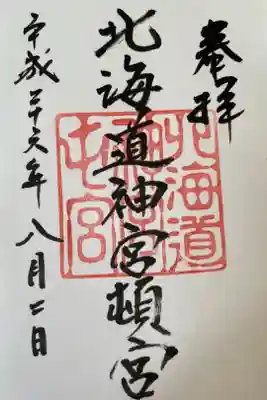 奉拝
北海道神宮頓宮
平成二十六年八月二日
北海道
宮